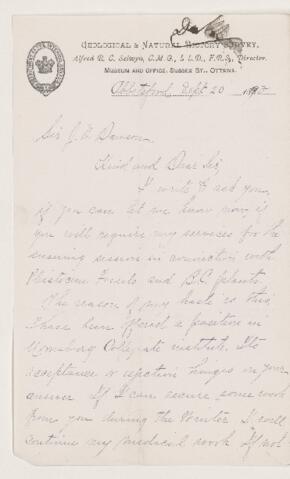 GEOLOGICAL & NATURAL HISTORY SURVEY.
Alfred R. C. Selwyn, C.M.G., L.L.D., F.R.S., Director.
MUSEUM AND OFFICE, SUSSEX ST., OTTAWA.
Abbotsford, Sept 20
Sir J. W. Dawson
Kind and Dear Sir,
I write to ask you
if you can let me know now if
you will require my services for the
ensuing session in connection with
Pleistocene Fossils and B.C. plants.
The reason of my haste is this,
I have been offered a position in
Collegiate institute. Its
acceptance or rejection hinges on your
answer. If I can secure some work
from you during the Winter I will
continue my medical work if not